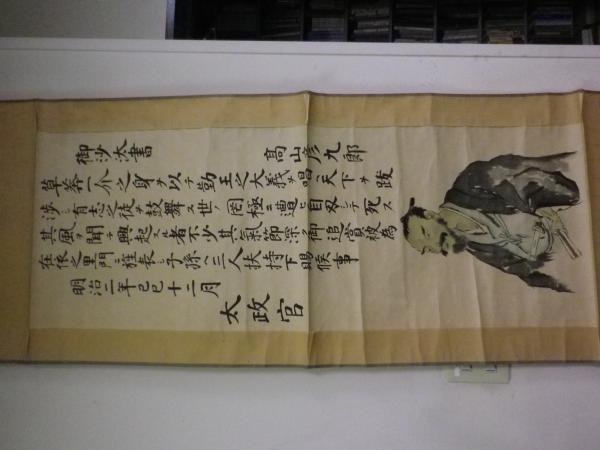 御沙汰書 高山彦九郎
草莽一介之身ヲ以テ勤王之大義ヲ唱ヘ天下ヲ跋
渉シ有志之徒ヲ鼓舞ス世ノ罔極ニ遭ヒ自刃シテ死ス
其風ヲ聞テ興起スル者不少其氣節深ク御追賞被為
在依之里門ニ旌表シ子孫ヘ三人扶持下賜候事
明治二年己巳十二月
太政官